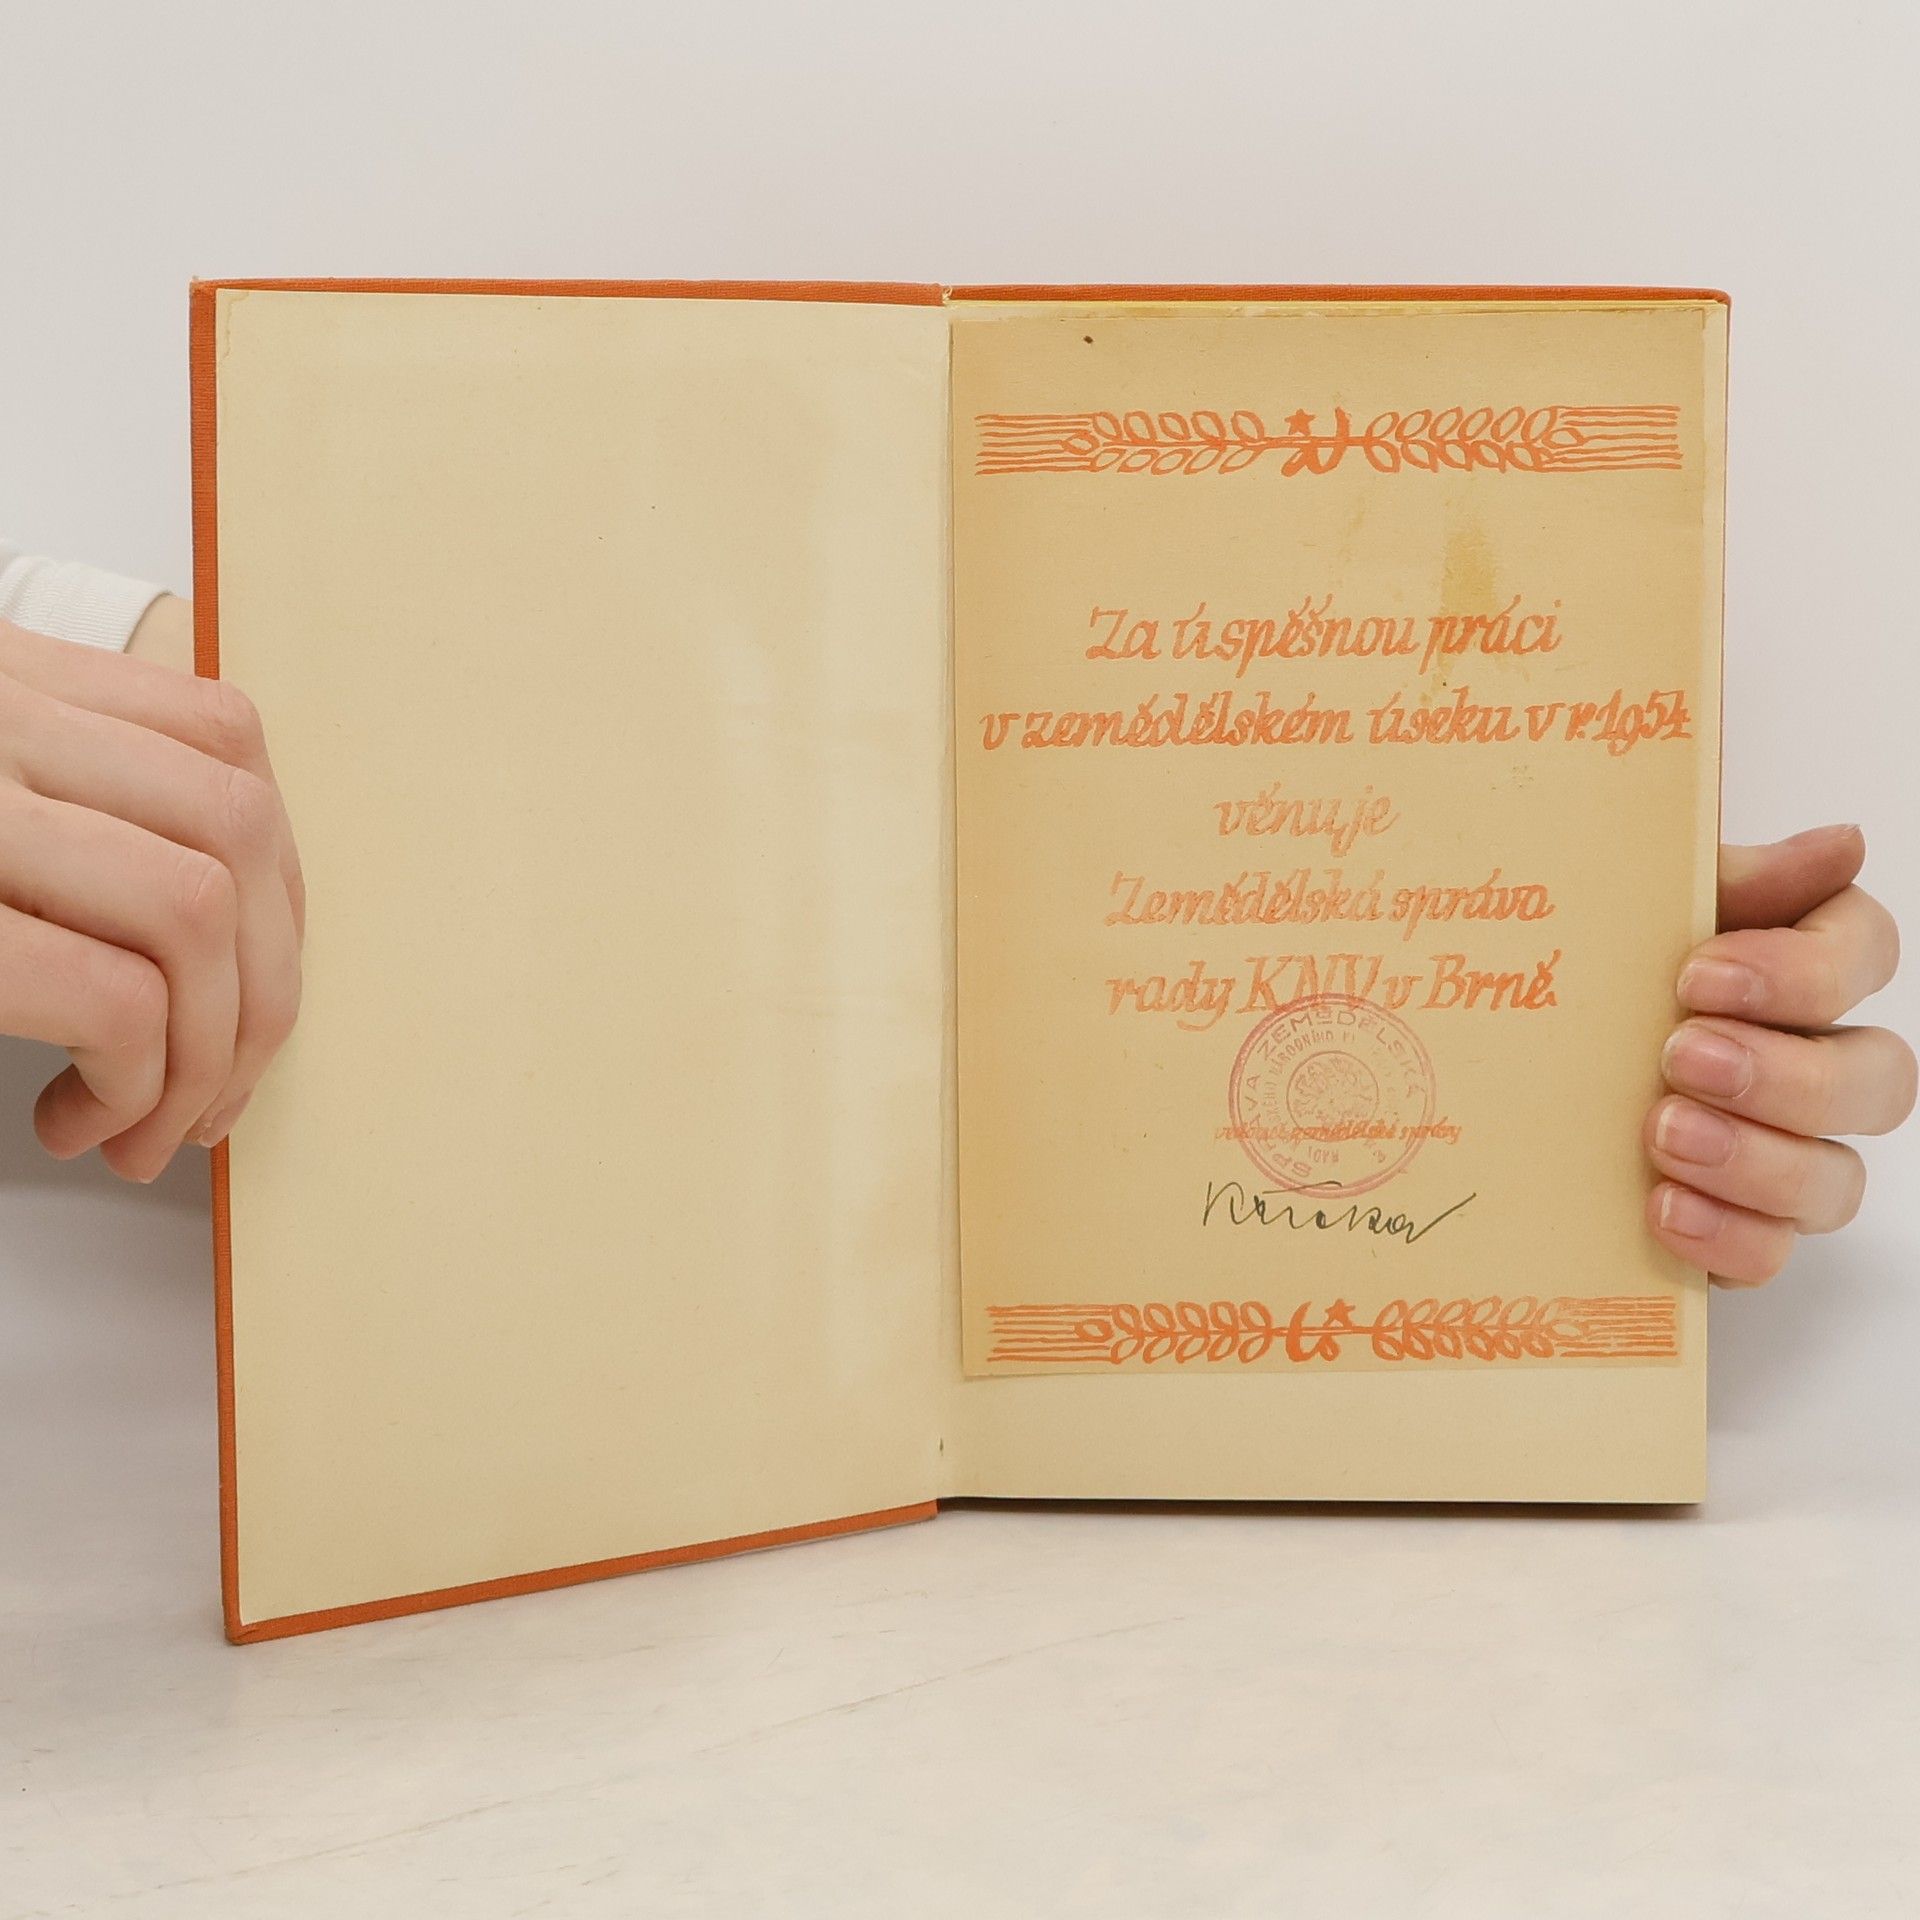 Za úspěšnou práci
v zemědělském úseku v r. 1954
věnuje
Zemědělská správa
rady KNV v Brně.
SPRÁVA ZEMĚDĚLSKÁ
NÁRODNÍHO
RADY
vedoucí zemědělské správy